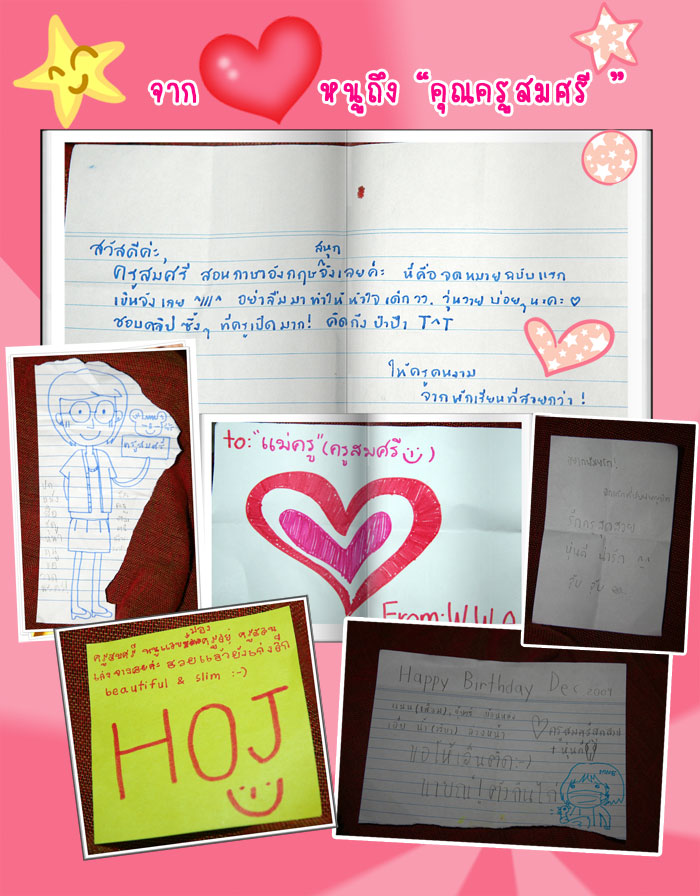 จาก หนูถึง “คุณครูสมศรี ”
สวัสดีค่ะ,
สนุก
ครูสมศรี สอนภาษาอังกฤษจังเลยค่ะ นี่คือจดหมายฉบับแรก
เขินจังเลย ^///^ อย่าลืมมาทำให้หัวใจเด็ก วว. วุ่นวายบ่อยๆ นะคะ ♡
ชอบคลิปซึ้งๆ ที่ครูเปิดมาก! คิดถึงป่าป๊า T^T
ให้ครูคนงาม
จากนักเรียนที่สวยกว่า !
ครูสมศรี
to: "แม่ครู" (ครูสมศรี )
From: W.W.
รักครูสุดสวย
หุ่นดี น่ารัก ^^
จุ๊บ จุ๊บ
มอง
ครูสมศรี หนูแอบครูอยู่ ครูสอน
สวยแล้วยังเก่งอีก
beautiful & slim :-)
HOJ
Happy Birthday Dec 2009
ครูสมศรีสุดสวย
+ หุ่นดี
ขอให้เอ็นติด :-)